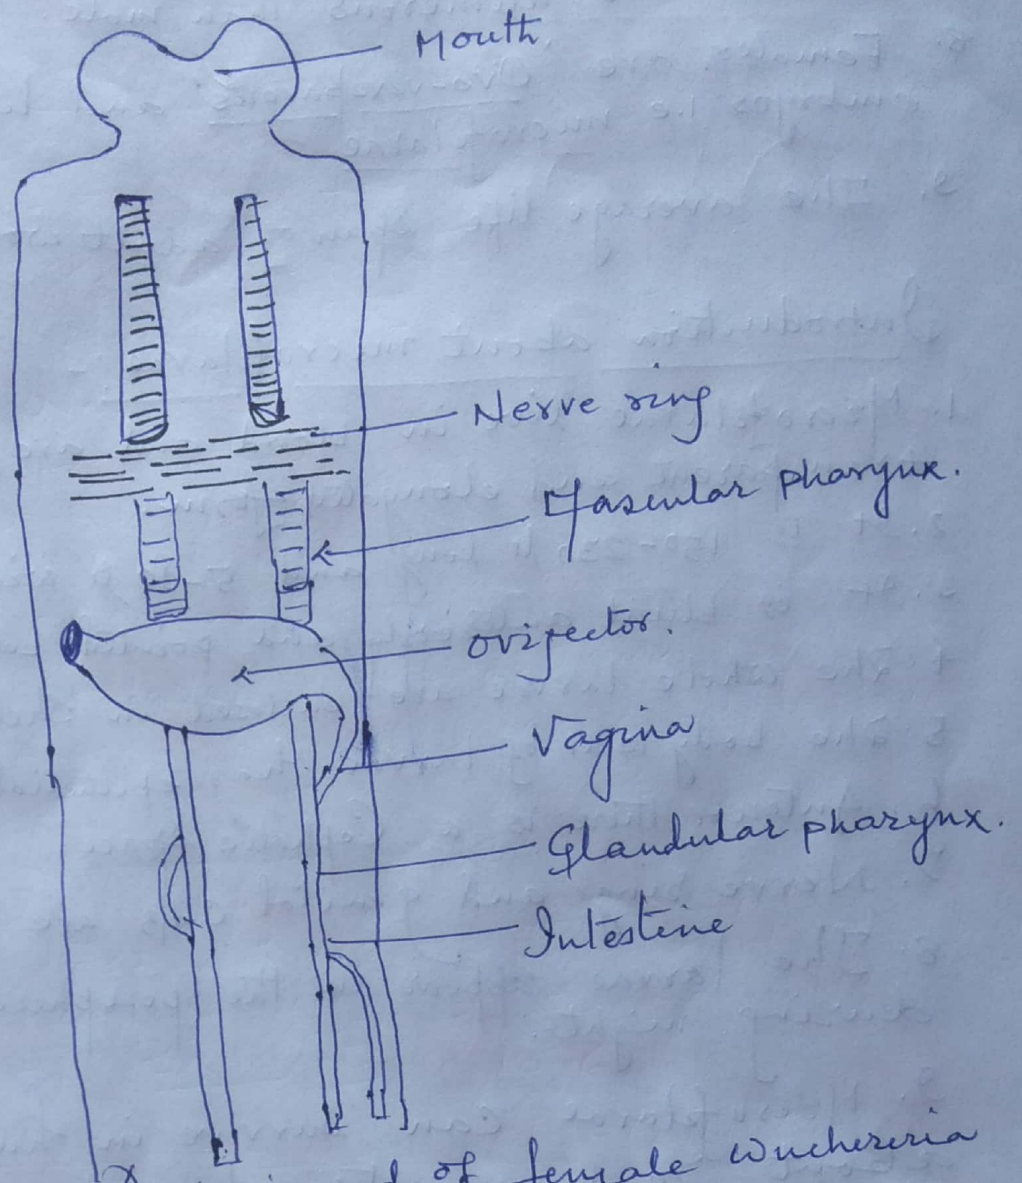 Mouth
Nerve ring
Mascular pharynx.
ovijector.
Vagina
Glandular pharynx.
Intestine
of female Wuchereria